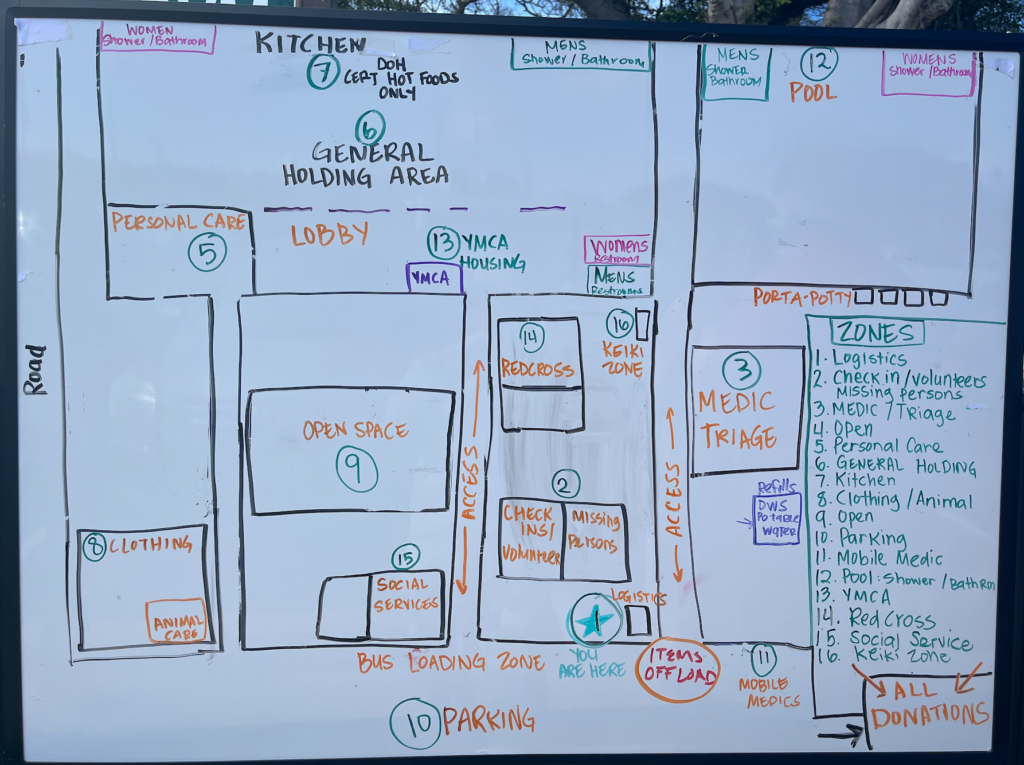 WOMEN
Shower/Bathroom
KITCHEN
7
DOH
CERT HOT FOODS
ONLY
MENS
Shower/Bathroom
MENS
Shower
Bathroom
12
POOL
WOMENS
Shower/Bathroom
6
GENERAL
HOLDING AREA
PERSONAL CARE
5
LOBBY
13 YMCA
HOUSING
YMCA
Womens
Restroom
MENS
Restrooms
PORTA-POTTY
Road
14
REDCROSS
16
KEIKI
ZONE
3
MEDIC
TRIAGE
OPEN SPACE
9
ACCESS
ACCESS
2
CHECK
INS/
Volunteer
Missing
Persons
Refills
DWS
Potable
Water
8 CLOTHING
ANIMAL
CARE
15
SOCIAL
SERVICES
LOGISTICS
1
YOU
ARE HERE
BUS LOADING ZONE
ITEMS
OFFLOAD
11
MOBILE
MEDICS
10 PARKING
ZONES
1. Logistics
2. Check in/volunteers
Missing persons
3. MEDIC/Triage
4. Open
5. Personal Care
6. GENERAL HOLDING
7. Kitchen
8. Clothing/Animal
9. Open
10. Parking
11. Mobile Medic
12. Pool: Shower/Bathrm
13. YMCA
14. Red Cross
15. Social Service
16. Keiki Zone
ALL
DONATIONS